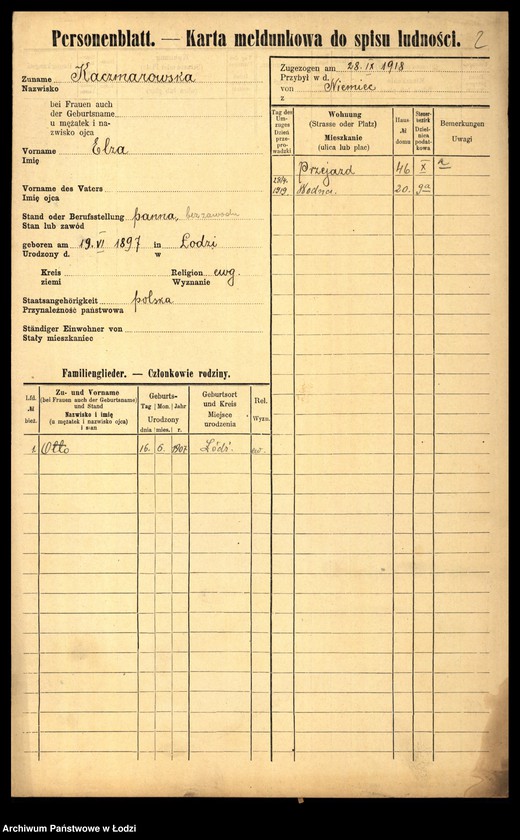 Personenblatt. — Karta meldunkowa do spisu ludności. 2
Zuname Kaczmarowska
Nazwisko
bei Frauen auch
der Geburtsname
u mężatek i na-
zwisko ojca
Vorname Elza
Imię
Vorname des Vaters
Imię ojca
Stand oder Berufsstellung panna, bez zawodu
Stan lub zawód
geboren am 19. VI 1897 in Łodzi
Urodzony d. w
Kreis Religion ewg.
ziemi Wyznanie
Staatsangehörigkeit polska
Przynależność państwowa
Ständiger Einwohner von
Stały mieszkaniec
Zugezogen am 28. IX 1918
Przybył w d.
von Niemiec
z
Tag des Um-zuges Dzień prze-pro-wadzki
Wohnung (Strasse oder Platz) Mieszkanie (ulica lub plac)
Haus № domu
Steuer-bezirk Dziel-nica podat-kowa
Bemerkungen Uwagi
Przejazd 46 X
28/4. 1919. Wodna. 20. 9a
Familienglieder. — Członkowie rodziny.
Lfd. № bież.
Zu- und Vorname (bei Frauen auch der Geburtsname) und Stand Nazwisko i imię (u mężatek i nazwisko ojca) i stan
Geburts- Tag Mon. Jahr Urodzony dnia mies. r.
Geburtsort und Kreis Miejsce urodzenia
Rel. Wyzn.
1. Otto 16. 6. 1907 Łódź.
Archiwum Państwowe w Łodzi